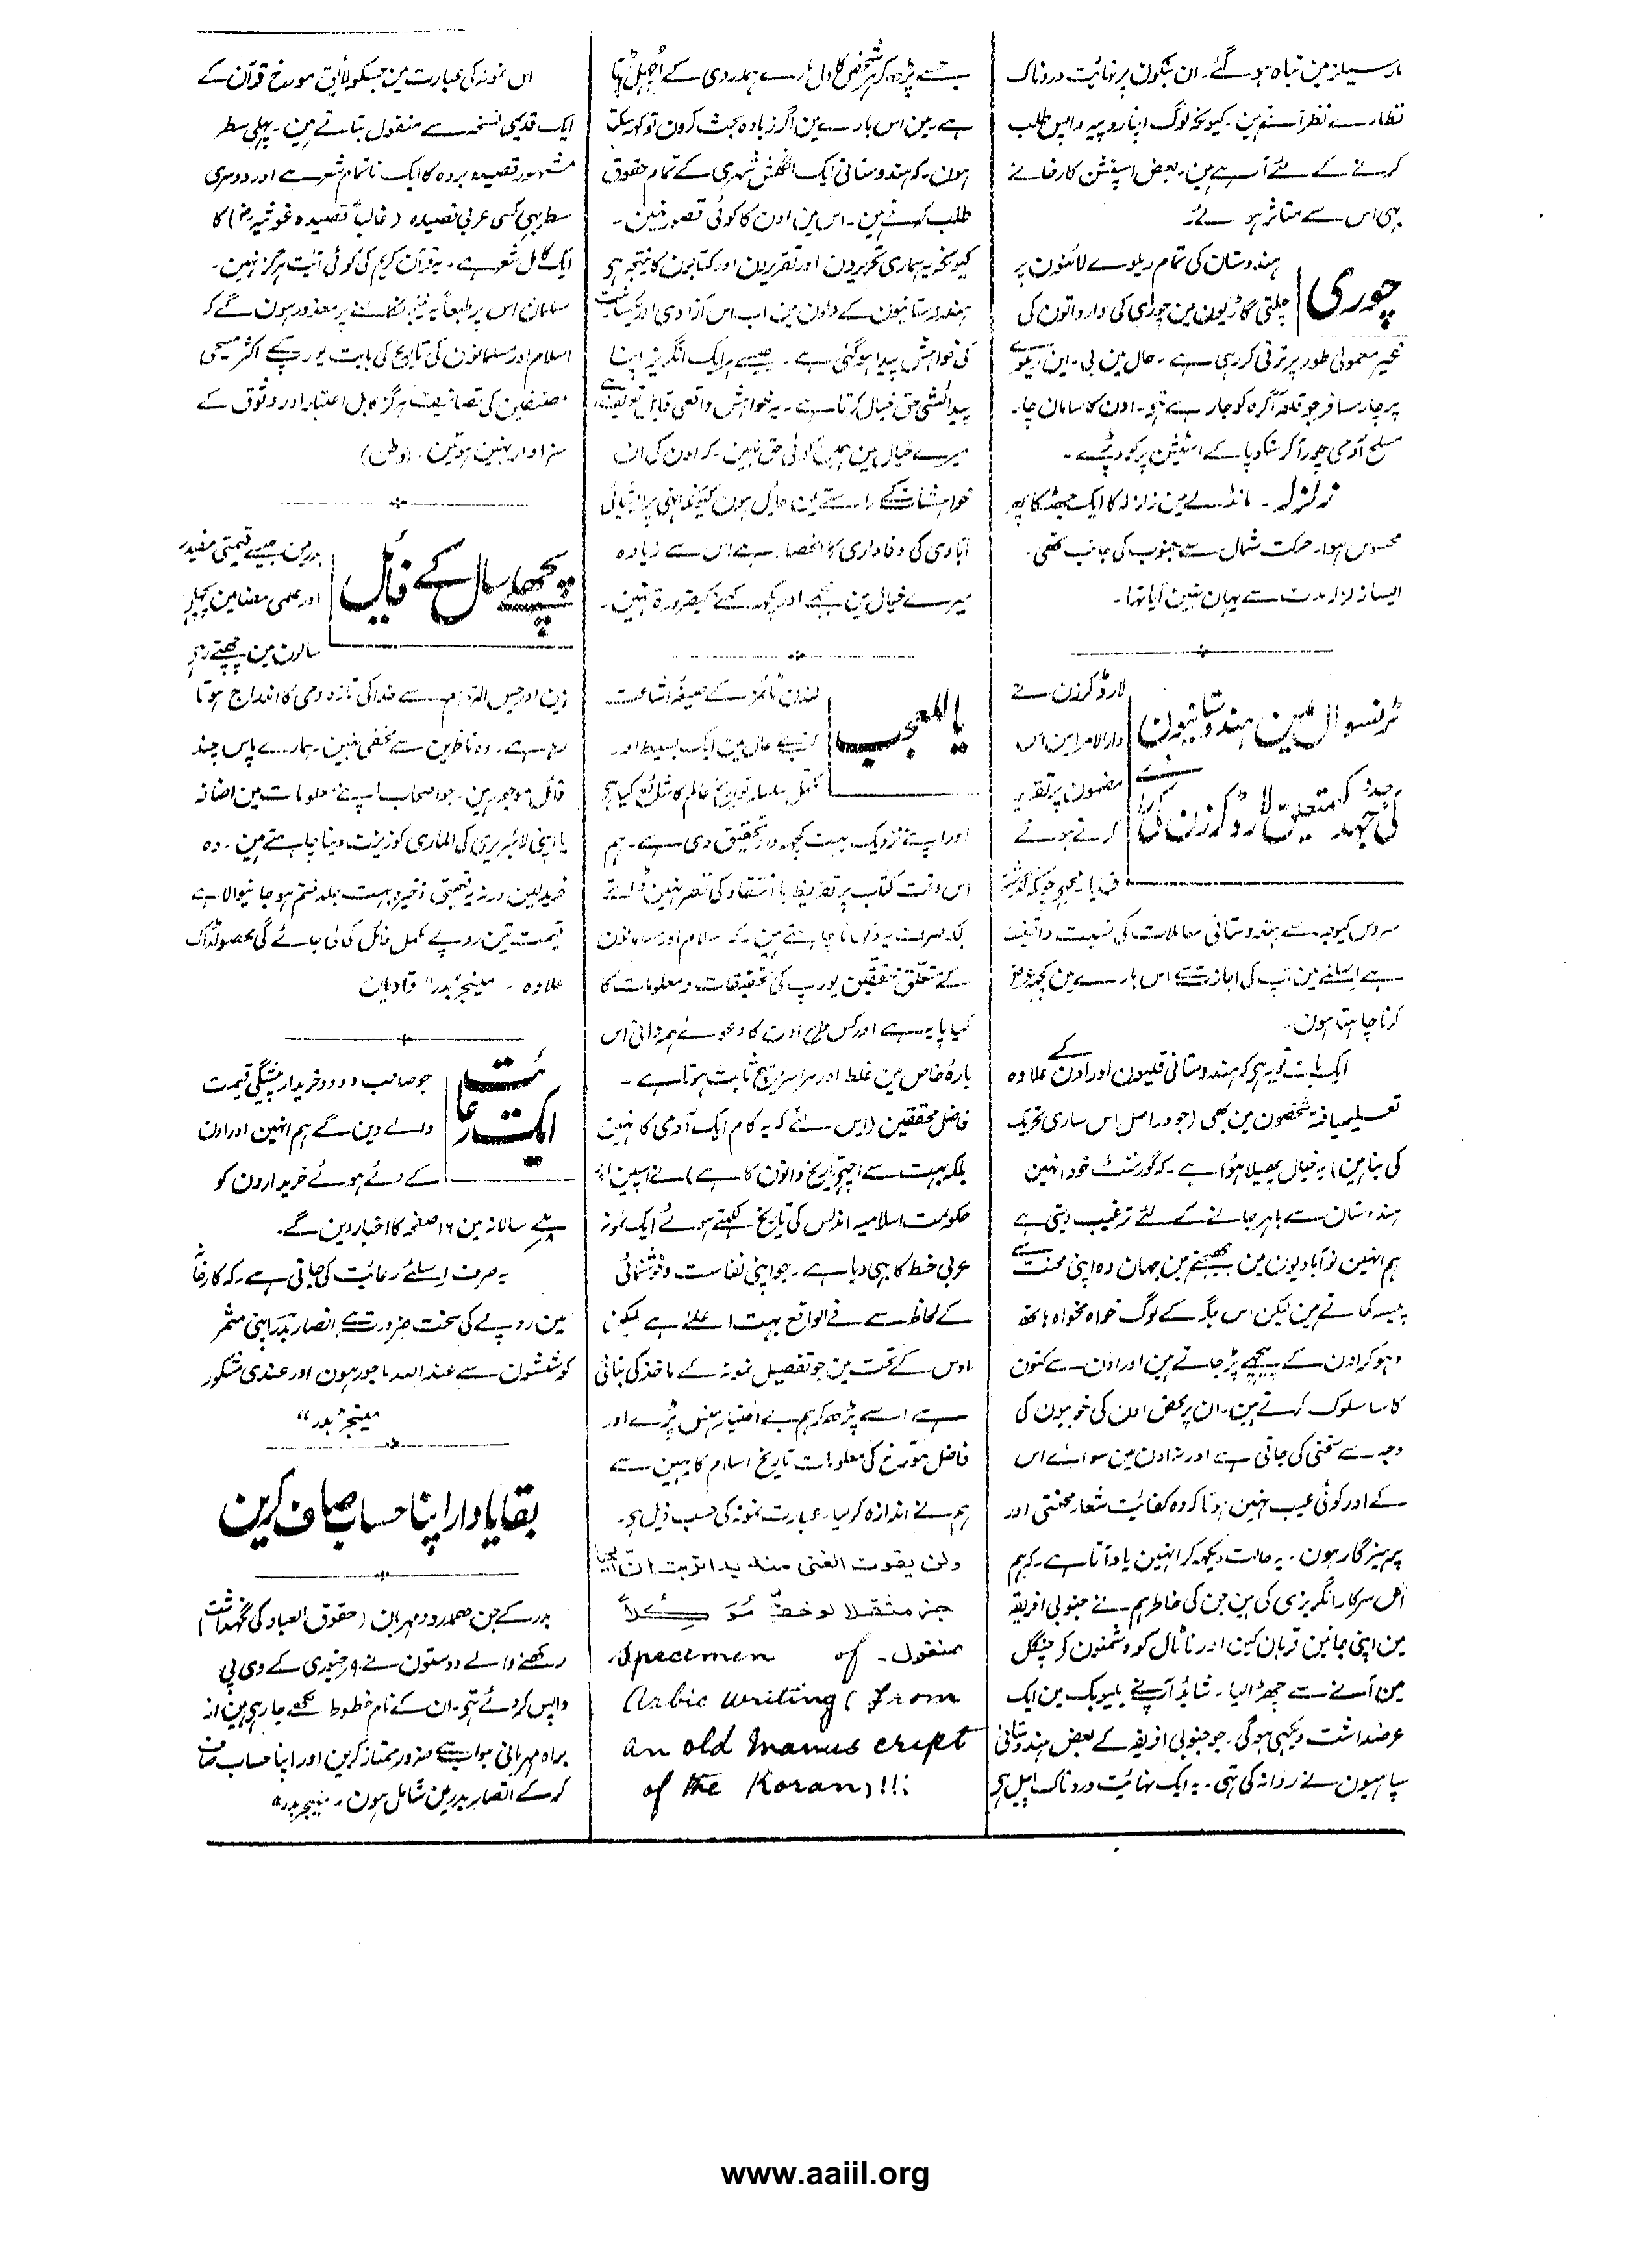 مارسیلز مین تباہ ہو گئے۔ ان بنکون پر نہائیت دردناک
نظارے نظر آتے ہین۔ کیونکہ لوگ اپنا روپیہ واپس طلب
کرنے کے لئے آرہے ہین۔ بعض اسپنشن کارخانے
بہی اس سے متاثر ہوئے۔
چوری
ہندوستان کی تمام ریلوے لائنون پر
چلتی گاڑیون مین چوری کی وارداتون کی
غیر معمولی طور پر ترقی کر رہی ہے۔ حال مین بی۔ این ریلوے
پر چار مسافر جو قلعہ آگرہ کو جارہے تہے۔ اون کا سامان چار
مسلح آدمی چورا کر سکو پا کے اسٹیشن پر کود پڑے۔
زلزلہ۔ مانڈلے مین زلزلہ کا ایک جھٹکا پہر
محسوس ہوا۔ حرکت شمال سے جنوب کی جانب تھی۔
ایسا زلزلہ مدت سے یہان نہین آیا تہا۔
ٹرنسوال مین ہندوستانیون
کی جدوجہد کے متعلق لارڈ کرزن کی رائے
لارڈ کرزن نے
دارالامرا مین اس
مضمون پر تقریر
کرتے ہوئے
فرمایا۔ مجہے چونکہ گذشتہ
سروس کیوجہ سے ہندوستانی معاملات کی نسبت واقفیت
ہے اسلئے مین آپ کی اجازت سے اس بارے مین کچہ عرض
کرنا چاہتا ہون۔
ایک بات تو یہ ہے کہ ہندوستانی قلیون اور اون کے علاوہ
تعلیمیافتہ شخصون مین بھی (جو دراصل اس ساری تحریک
کی بنا ہین) یہ خیال پھیلا ہوا ہے۔ کہ گورنمنٹ خود انہین
ہندوستان سے باہر جانے کے لئے ترغیب دیتی ہے
ہم انہین نوآبادیون مین بھیجتے ہین جہان وہ اپنی محنت سے
پیسہ کماتے ہین لیکن اس جگہ کے لوگ خواہ مخواہ ہاتھ
دہو کر اون کے پیچھے پڑ جاتے ہین اور اون سے کتون
کا سا سلوک کرتے ہین۔ ان پر محض اون کی خوبیون کی
وجہ سے سختی کی جاتی ہے اور نہ اون مین سوائے اس
کے اور کوئی عیب نہین ہوتا کہ وہ کفائیت شعار محنتی اور
پرہیزگار ہون۔ یہ حالت دیکھہ کر انہین یاد آتا ہے۔ کہ ہم
اس سرکار انگریزی کی ہین جن کی خاطر ہم نے جنوبی افریقہ
مین اپنی جانین قربان کین اور ناٹال کو دشمنون کے چنگل
مین آنے سے چھڑا لیا۔ شاید آپنے بلیو بک مین ایک
عرضداشت دیکہی ہوگی۔ جو جنوبی افریقہ کے بعض ہندوستانی
سپاہیون نے روانہ کی تہی۔ یہ ایک نہائیت دردناک اپیل ہے
جسے پڑھ کر ہر شخص کا دل مارے ہمدردی کے اُچہل پڑتا
ہے۔ مین اس بارے مین اگر زیادہ بحث کرون تو کہہ سکتا
ہون۔ کہ ہندوستانی ایک انگلش شہری کے تمام حقوق
طلب کرتے ہین۔ اس مین اون کا کوئی قصور نہین۔
کیونکہ یہ ہماری تحریرون اور تقریرون اور کتابون کا نتیجہ ہے
ہندوستانیون کے دلون مین اب اس آزادی اور یکسانیت
کی خواہش پیدا ہو گئی ہے۔ جسے ہر ایک انگریز اپنا
پیدائشی حق خیال کرتا ہے۔ یہ خواہش واقعی قابل تعریف ہے
میرے خیال مین ہمین کوئی حق نہین۔ کہ اون کی ان
خواہشات کے راستے مین حایل ہون کیونکہ اپنی پر ایشیائی
آبادی کی وفاداری کا انحصار ہے اس سے زیادہ
میرے خیال مین مجہے اور کچھ کہنے کی ضرورۃ نہین۔
یاللعجب
لندن ٹائمز کے صیغہ اشاعت
نے حال مین ایک بسیط اور
مکمل سلسلہ تواریخ عالم کا شائع کیا ہے
اور اپنے نزدیک بہت کچھہ داد تحقیق دی ہے۔ ہم
اس وقت کتاب پر تقریظ یا انتقاد کی نظر نہین ڈالتے
بلکہ صرف یہ دکہانا چاہتے ہین۔ کہ اسلام اور مسلمانون
کے متعلق محققین یورپ کی تحقیقات و معلومات کا
کیا پایہ ہے اور کس طرح اون کا دعوے ہمہ دانی اس
بارۂ خاص مین غلط اور سراسر ہیچ ثابت ہوتا ہے۔
فاضل محققین (اس لئے کہ یہ کام ایک آدمی کا نہین
بلکہ بہت سے اچہے تاریخ دانون کا ہے) نے اسپین اور
حکومت اسلامیہ اندلس کی تاریخ لکھتے ہوئے ایک نمونہ
عربی خط کا بہی دیا ہے۔ جو اپنی نفاست و خوشنمائی
کے لحاظ سے فی الواقع بہت اعلےٰ ہے لیکن
اوس کے تحت مین جو تفصیل نمونہ کے ماخذ کی بتائی
ہے اسے پڑھ کر ہم بے اختیار ہنس پڑے اور
فاضل مؤرخ کی معلومات تاریخ اسلام کا یہین سے
ہم نے اندازہ کر لیا۔ عبارت نمونہ کی حسب ذیل ہے۔
ولن یفوت الغنی منہ یدا تربت ان الحیا
منقول۔ Specimen of
Arbic writing (from
an old Manus cript
of the Koran)!!!
اس نمونہ کی عبارت مین جسکو لائق مورخ قرآن کے
ایک قدیمی نسخہ سے منقول بتاتے ہین۔ پہلی سطر
مشہور قصیدہ بردہ کا ایک ناتمام شعر ہے اور دوسری
سطر بہی کسی عربی قصیدہ (غالباً قصیدہ غوثیہ) کا
ایک کامل شعر ہے۔ یہ قرآن کریم کی کوئی آئیت ہرگز نہین۔
مسلمان اس پر طبعاً یہ نتیجہ نکالنے پر معذور ہون گے کہ
اسلام اور مسلمانون کی تاریخ کی بابت یورپ کے اکثر مسیحی
مصنفین کی تصانیف ہرگز قابل اعتبار اور وثوق کے
سزاوار نہین ہوتین۔ (وطن)
پچھلے سال کے فائیل
بدر مین جیسے قیمتی مفید
اور علمی مضامین پچہلے
سالون مین چھپتے رہے
ہین اور جس التزام سے خدا کی تازہ وحی کا اندراج ہوتا
رہا ہے۔ وہ ناظرین سے مخفی نہین۔ ہمارے پاس چند
فائل موجود ہین۔ جو اصحاب اپنے معلومات مین اضافہ
یا اپنی لائبریری کی الماری کو زینت دینا چاہتے ہین۔ وہ
خرید لین ورنہ یہ قیمتی ذخیرہ بہت جلد ختم ہو جانیوالا ہے
قیمت تین روپے مکمل فائل کی لی جائے گی محصولڈاک
علاوہ۔ مینیجر بدر" قادیان
ایک رعائت
جو صاحب دو دو خریدار پیشگی قیمت
والے دین گے ہم انہین اور اون
کے دئے ہوئے خریدارون کو
سالانہ مین ۱۶ صفحہ کا اخبار دین گے۔
یہ صرف اسلئے رعائیت کی جاتی ہے۔ کہ کارخانہ
مین روپے کی سخت ضرورت ہے انصار بدر اپنی مثمر
کوششون سے عند اللہ ماجور ہون اور عندی مشکور
مینیجر بدر"
بقایا دار اپنا حساب صاف کرین
بدر کے جن ہمدرد و مہربان (حقوق العباد کی نگہداشت)
رکھنے والے دوستون نے ۹ جنوری کے وی پی
واپس کر دئے تہے۔ ان کے نام خطوط لکھے جا رہے ہین از
براہ مہربانی جواب سے ضرور ممتاز کرین اور اپنا حساب صاف
کر کے انصار بدر مین شامل ہون۔ مینیجر بدر"
www.aaiil.org